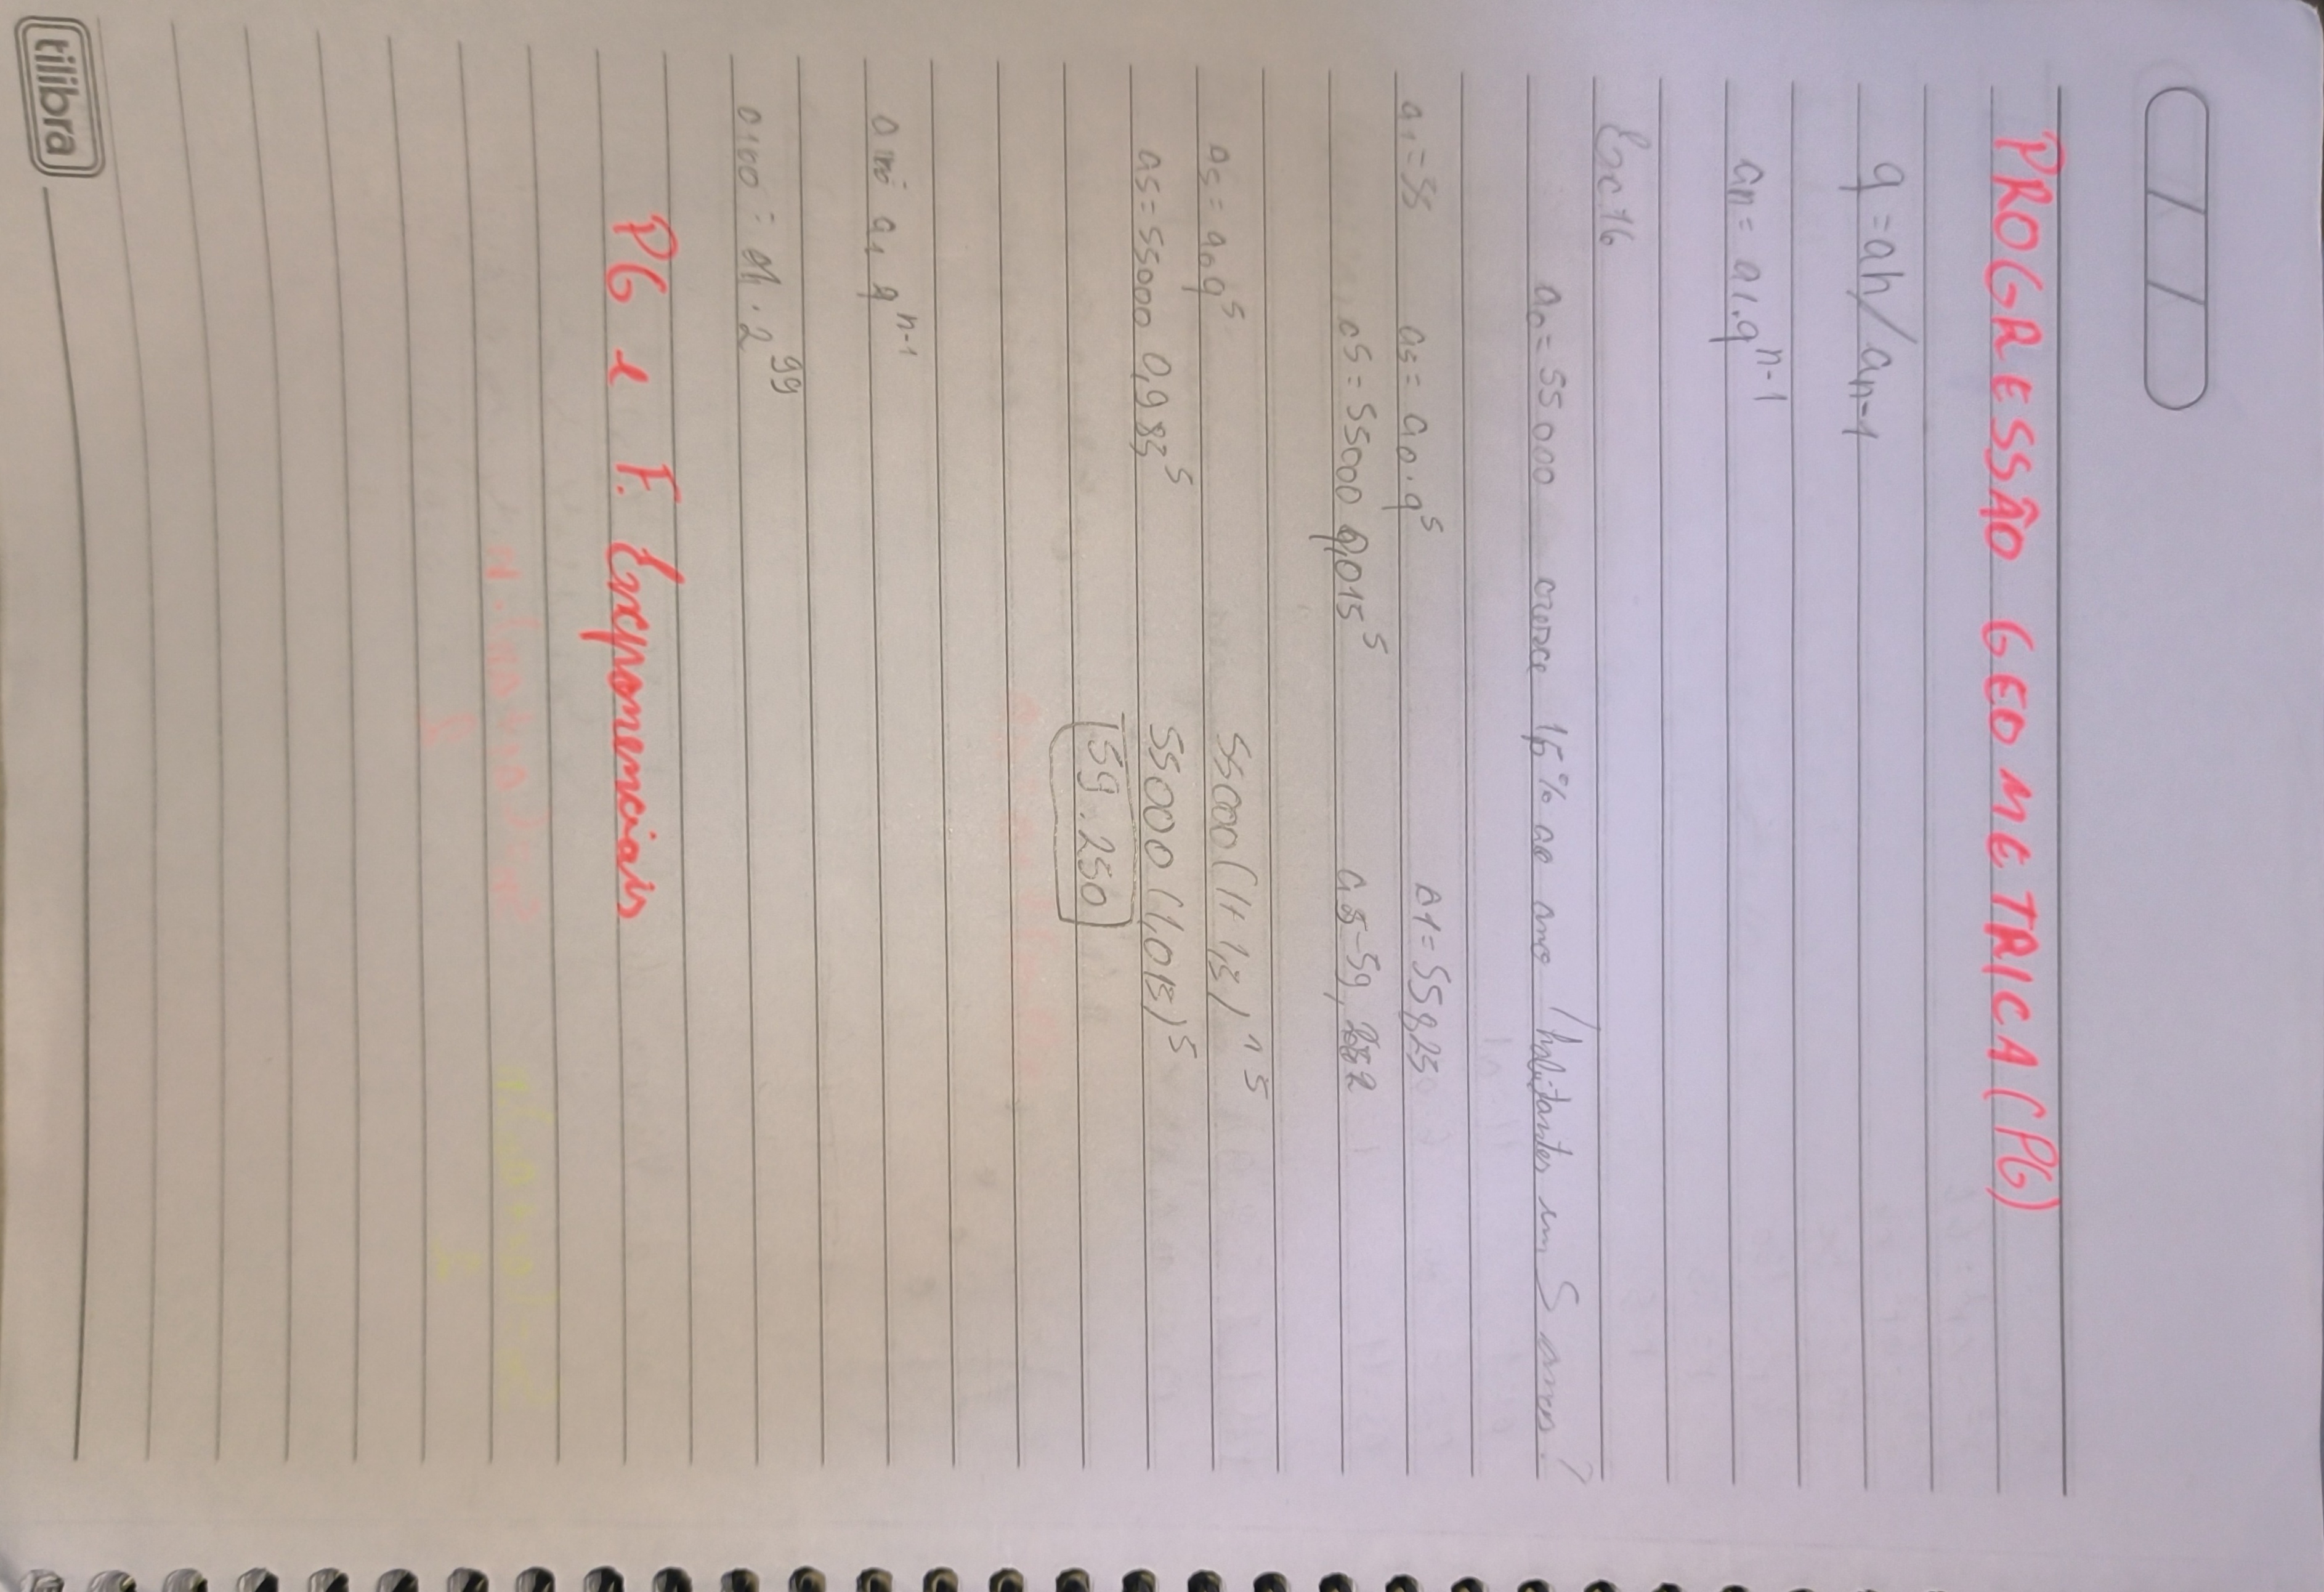 PROGRESSÃO GEOMETRICA (PG)
q = an/an-1
an = a1.q^n-1
Exc 16
a0 = 55000 cresce 15% ao ano / habitantes em 5 anos?
a1 = 55 a5 = a0.q^5 A1 = 55825
a5 = 55000 1,015^5
a5 = a0 q^5 55000 (1+1,5)^1 5
a5 = 55000 0,985^5 55000 (1,015)^5
59.250
a100 = a1 q^n-1
a100 = a1.2^99
PG e F. Exponenciais
tilibra